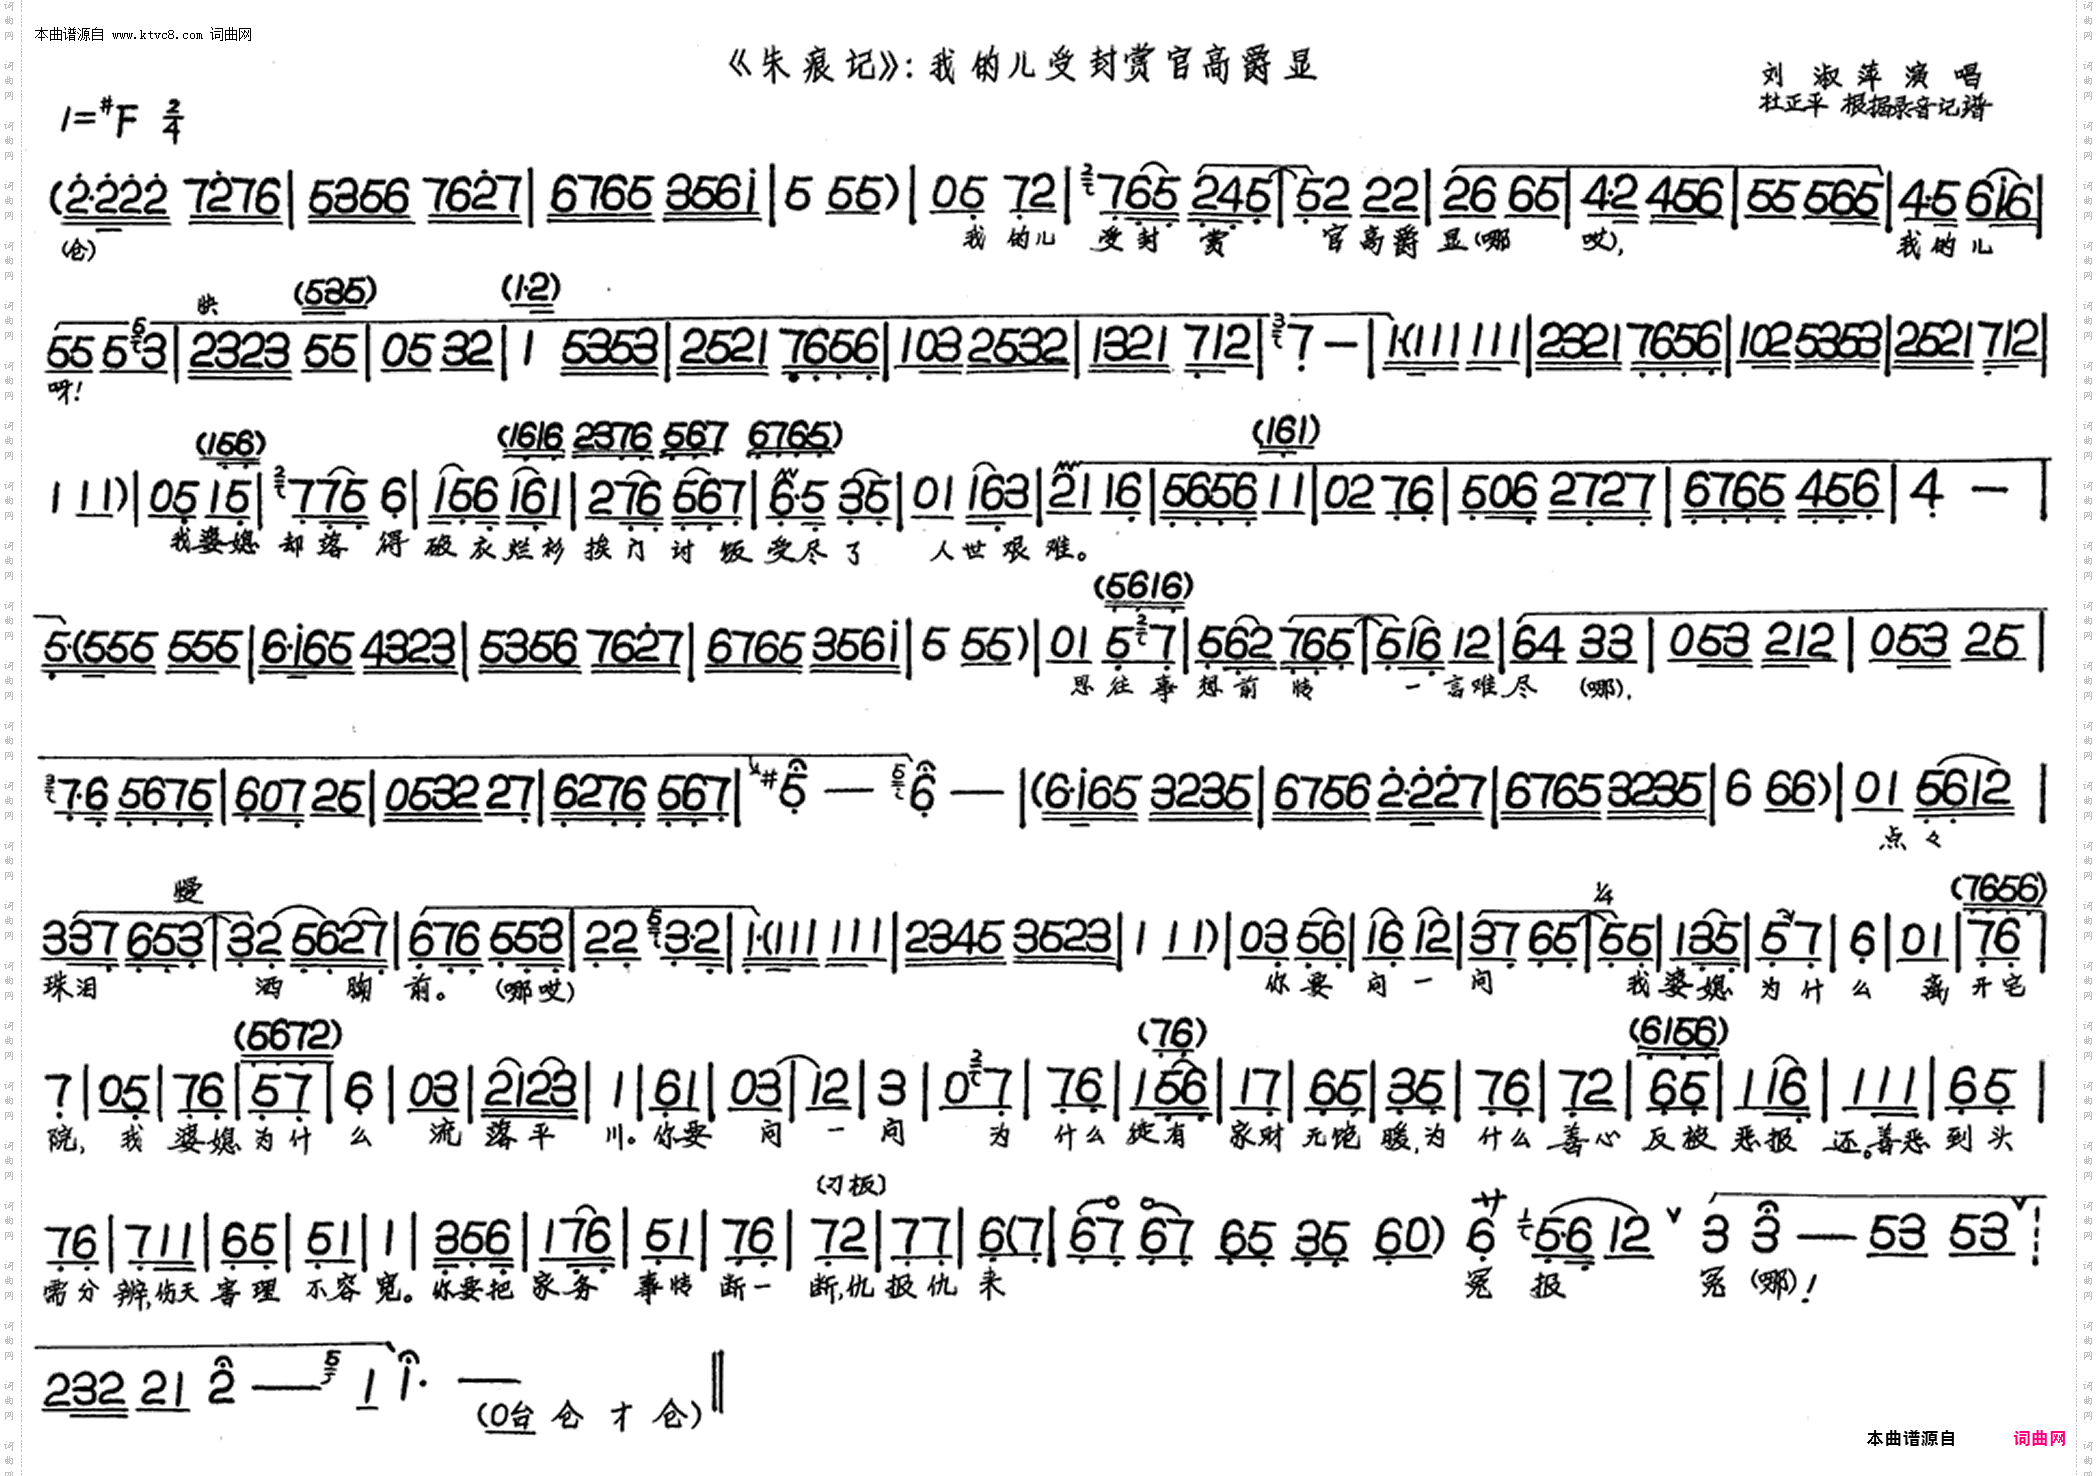 本曲谱源自 www.ktvc8.com 词曲网
《朱痕记》：我的儿受封赏官高爵显
刘淑萍演唱
杜正平 根据录音记谱
1=#F 2/4
(2·222 7276 | 5356 7627 | 6765 3561 | 5 55) | 05 72 | 765 245 | 52 22 | 26 65 | 4·2 456 | 55 565 | 4·5 616 |
(仓) 我的儿 受封赏 官高爵显(哪 哎), 我的儿
快 (535) (1·2)
55 5 3 | 2323 55 | 05 32 | 1 5353 | 2521 7656 | 103 2532 | 1321 712 | 7 — | 1·(111 111 | 2321 7656 | 102 5353 | 2521 712 |
呀!
(156) (1616 2376 567 6765) (161)
1 11) | 05 15 | 775 6 | 156 161 | 276 567 | 6·5 35 | 01 163 | 21 16 | 5656 11 | 02 76 | 506 2727 | 6765 456 | 4 — |
我婆媳 却落得破衣烂衫挨门讨饭受尽了 人世艰难。
(5616)
5·(555 555 | 6·165 4323 | 5356 7627 | 6765 3561 | 5 55) | 01 5 7 | 562 765 | 516 12 | 64 33 | 053 212 | 053 25 |
思往事想前情 一言难尽 (哪),
7·6 5675 | 607 25 | 0532 27 | 6276 567 | #5 — 6 — | (6·165 3235 | 6756 2·227 | 6765 3235 | 6 66) | 01 5612 |
点々
慢 1/4 (7656)
337 653 | 32 5627 | 676 553 | 22 3·2 | 1·(111 111 | 2345 3523 | 1 11) | 03 56 | 16 12 | 37 65 | 55 | 135 | 57 | 6 | 01 | 76 |
珠泪 洒 胸 前。 (哪哎) 你要 问一问 我婆媳为什么 离开宅
(5672) (76) (6156)
7 | 05 | 76 | 57 | 6 | 03 | 2123 | 1 | 61 | 03 | 12 | 3 | 0 7 | 76 | 156 | 17 | 65 | 35 | 76 | 72 | 65 | 116 | 111 | 65 |
院, 我婆媳为什么 流落平川。你要 问一问 为什么 有家财无饱暖,为什么善心反被恶报还。善恶到头
(刁板)
76 | 711 | 65 | 51 | 1 | 356 | 176 | 51 | 76 | 72 | 77 | 6(7 | 67 67 65 35 60) 6 5·6 12 3 3 — 53 53
需分辨,伤天害理不容宽。你要把家务事情断一断,仇报仇来 冤报 冤(哪)!
232 21 2 — 1 1· —
(0台 仓 才 仓)
本曲谱源自 词曲网